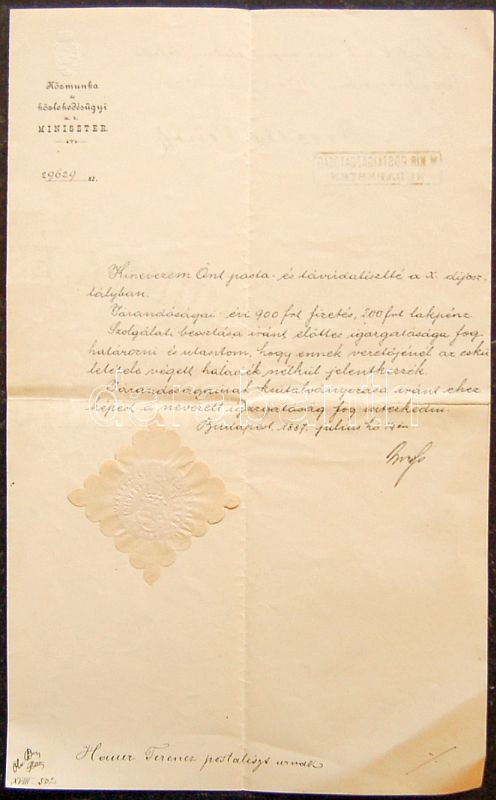 Közmunka
és
közlekedésügyi
m. k.
MINISZTER.
29629 sz.
M. KIR. POSTAIGAZGATÓSÁG
BUDAPESTEN
Kinevezem Önt posta- és távirdatisztté a X. díjosz-
tályban.
Járandóságai: évi 900 frt fizetés, 200 frt lakpénz.
Szolgálati beosztása iránt előttes igazgatósága fog
határozni és utasítom, hogy ennek vezetőjénél az eskü
letétele végett haladék nélkül jelentkezzék.
Járandóságainak kiutalványozása iránt ehez
képest a nevezett igazgatóság fog intézkedni.
Budapest, 1887. július hó
Hauer Ferencz postatiszt urnak
XVIII. 502.
darabanth.com